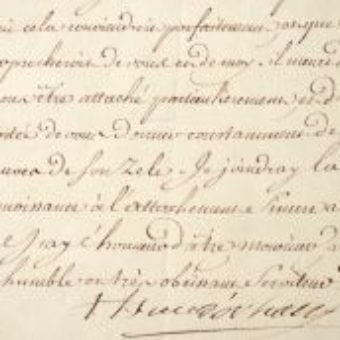 si cela conviendroit parfaitement, et que
approcheroit de vous et de moy. il
vous être attaché particulierement, et d
portée de vous donner constamment de
de son Zele. Je joindray la
à l'attachement Sincere a
Jay l'honneur d'être monsieur
humble et très obeissant Serviteur